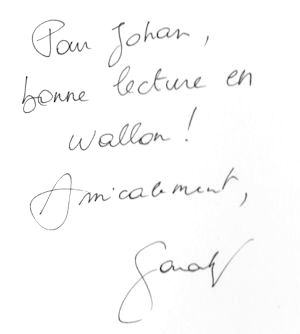 Pour Johan,
bonne lecture en
wallon !
Amicalement,